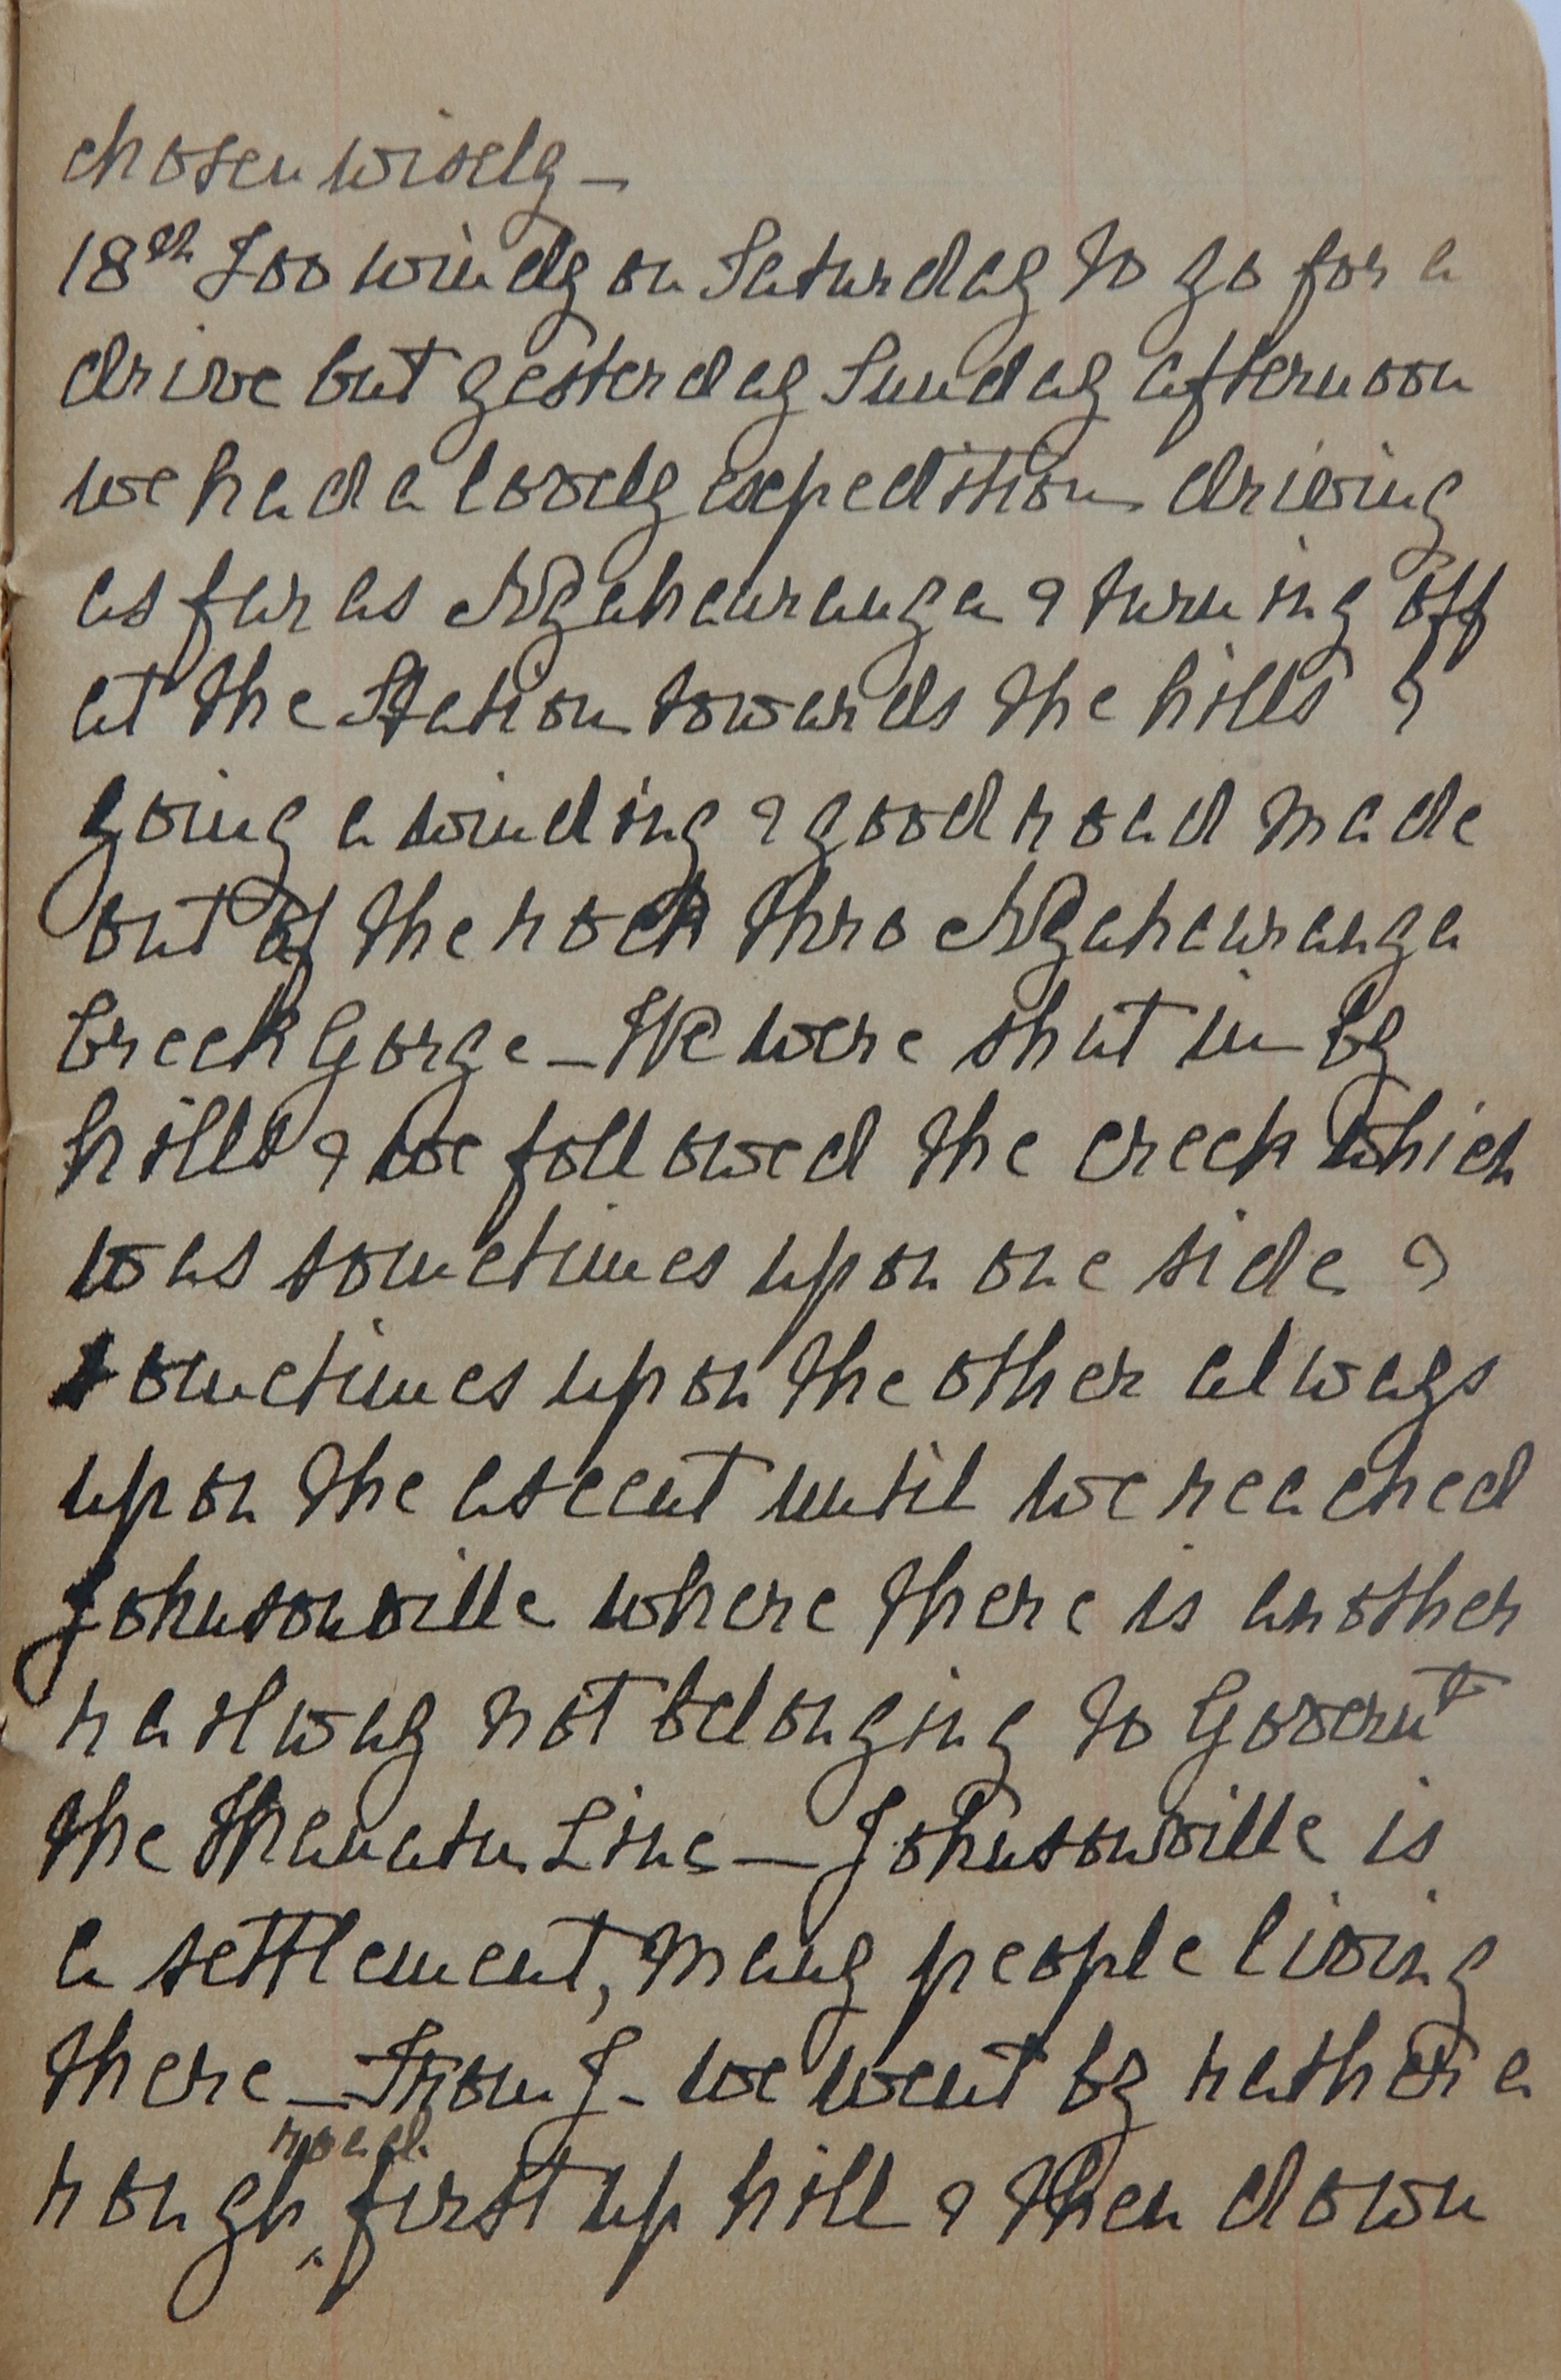 chosen wisely –
18th Too windy on Saturday to go for a
drive but yesterday Sunday afternoon
we had a lovely expedition driving
as far as Ngahauranga & turning off
at the Station towards the hills &
going a winding & good road made
out of the rock thro Ngahauranga
Creek Gorge – We were shut in by
hills & we followed the creek which
was sometimes upon one side &
sometimes upon the other always
upon the ascent until we reached
Johnsonville where there is another
railway not belonging to Governt
the Manatu Line – Johnsonville is
a settlement, many people living
there – From J – we went by rather a
rough road first up hill & then down